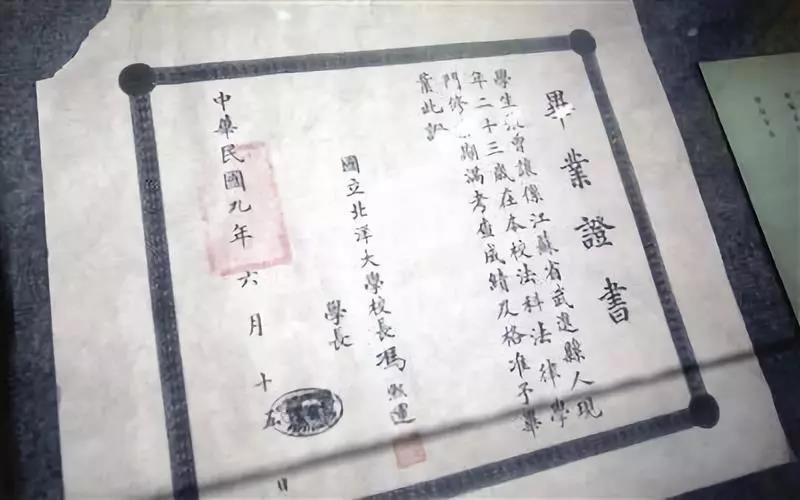 畢業證書
學生曾讓係江蘇省武進縣人現
年二十三歲在本校法科法律學
門修期滿考查成績及格准予畢
業此証
國立北洋大學校長馮熙運
學長
中華民國九年六月十五日